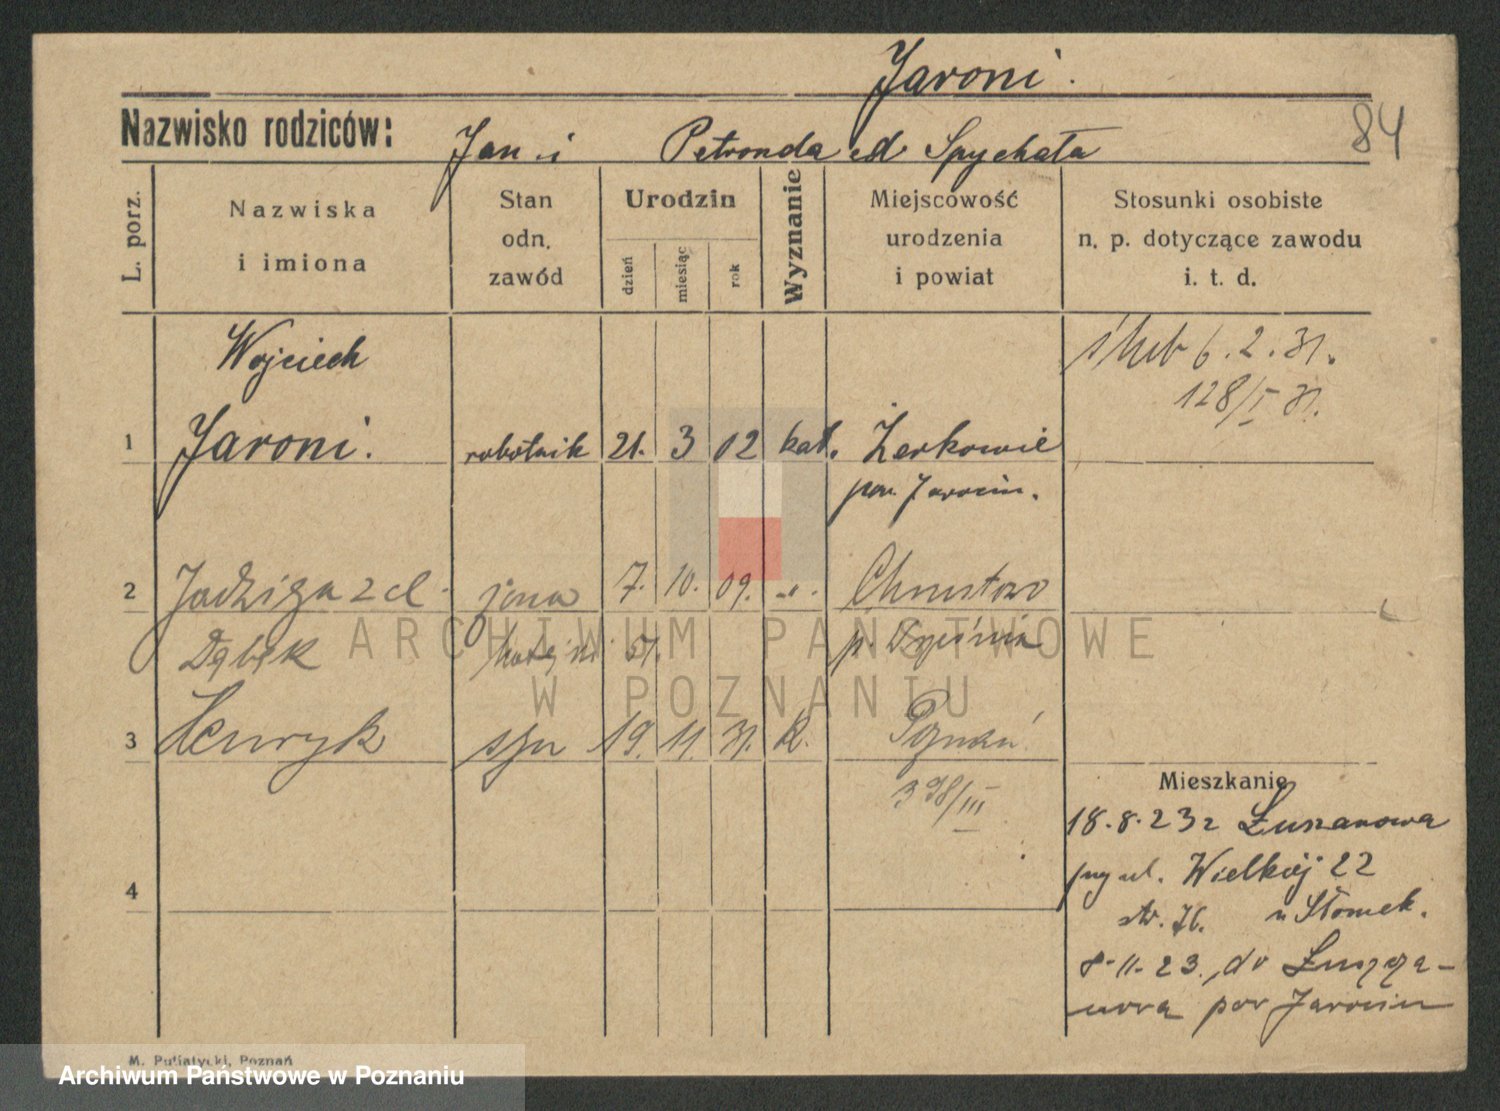 Jaroni.
84
Nazwisko rodziców: Jan i Petronela od Spychała
L. porz.
Nazwiska i imiona
Stan odn. zawód
Urodzin
dzień
miesiąc
rok
Wyznanie
Miejscowość urodzenia i powiat
Stosunki osobiste n. p. dotyczące zawodu i. t. d.
Wojciech
ślub 6.2.31.
128/I 31.
1 Jaroni. robotnik 21. 3 02 kat. Żerkowie
pow. Jarocin.
2 Jadwiga z d. żona 7. 10. 09. -"-. Chrustowo
Dębek
3 Henryk syn 19. 11. 31. k. Poznań
398/III
Mieszkanie
18.8.23 z Łuszanowa
przy ul. Wielkiej 22
str. 76. u Słomek.
8.11.23. do Łuszcza-
nowa pow Jarocin
4
M. Putiatycki, Poznań
ARCHIWUM PAŃSTWOWE
W POZNANIU
Archiwum Państwowe w Poznaniu